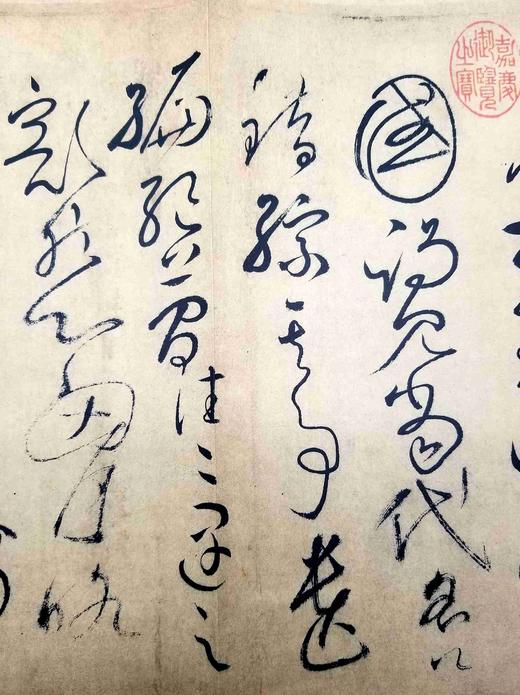 嘉慶御覽之寶
國謁見當代名公
錯綜其事遺
編絕簡往〻遇之
豁然心胸略